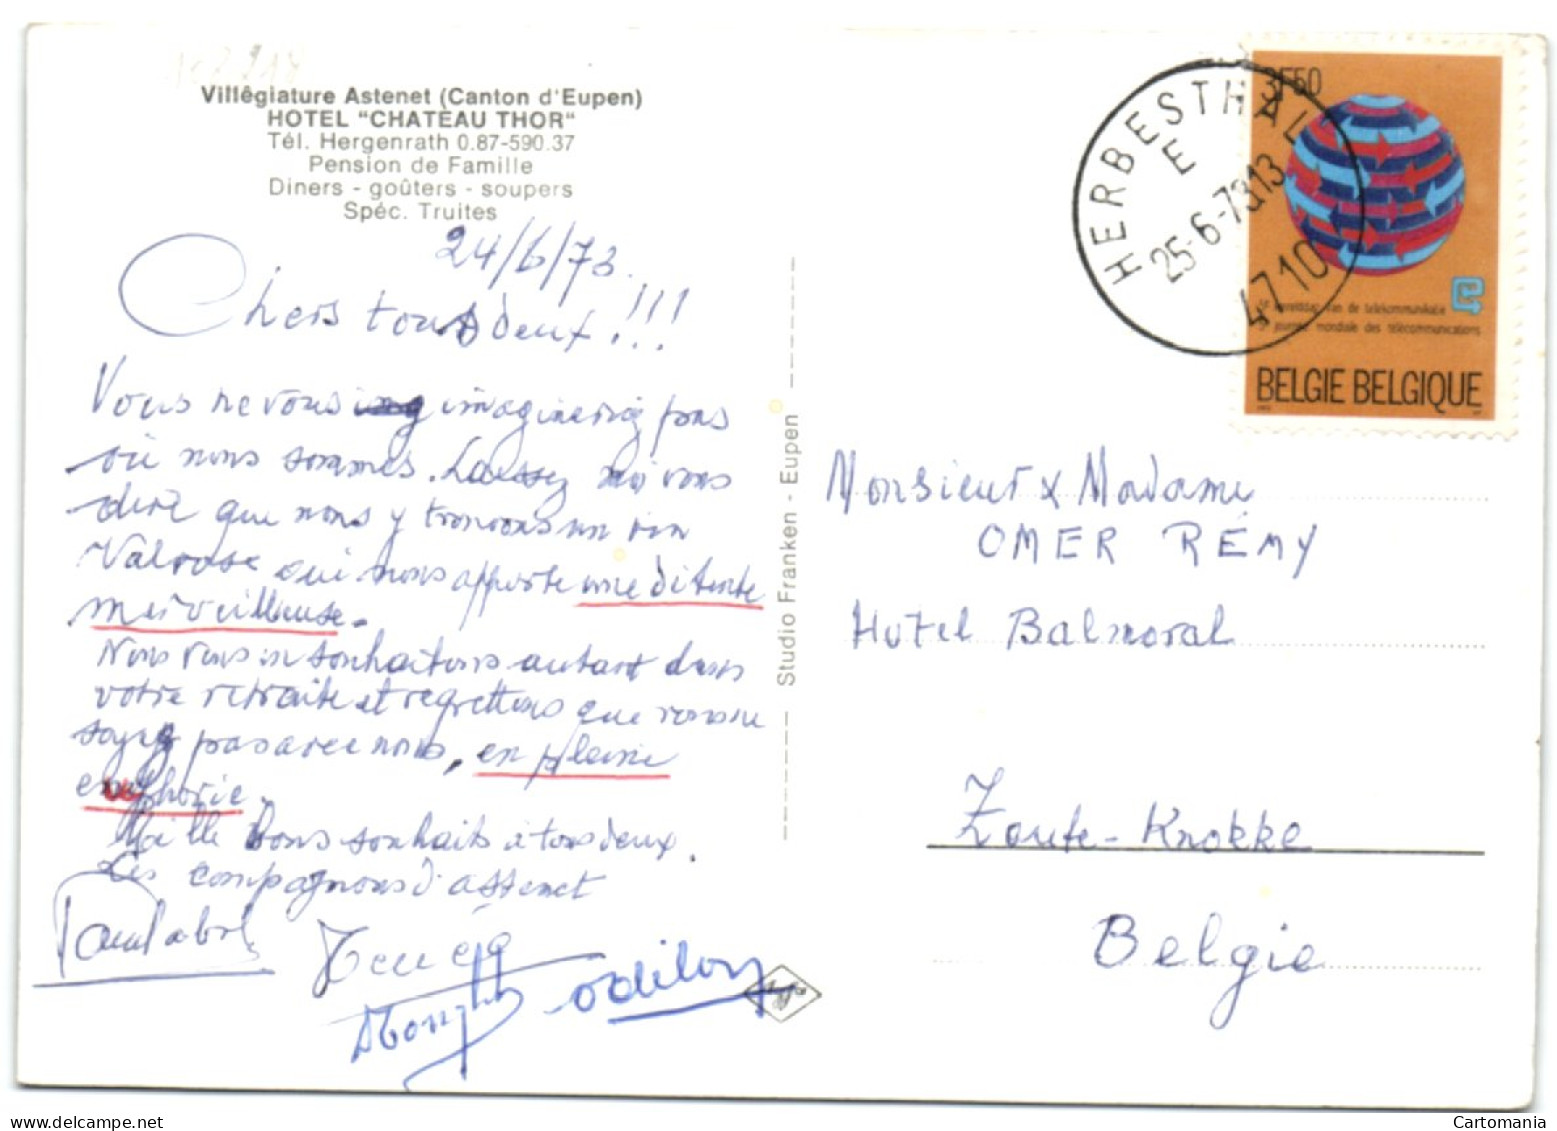 Villégiature Astenet (Canton d'Eupen)
HOTEL "CHATEAU THOR"
Tél. Hergenrath 0.87-590.37
Pension de Famille
Diners - goûters - soupers
Spéc. Truites
24/6/73.
Chers tous deux!!!
Vous ne vous imaginerez pas
où nous sommes. Laissez moi vous
dire que nous y trouvons un vin
Valrose qui nous apporte une détente
merveilleuse.
Nous vous en souhaitons autant dans
votre retraite et regrettons que vous ne
soyez pas avec nous, en pleine
euphorie.
Mille bons souhaits à tous deux.
Les compagnons d'Astenet
Odilon
Studio Franken - Eupen
HERBESTHAL
E
25-6-73 13
4710
3F50
5e werelddag van de telekommunikatie
5e journée mondiale des télécommunications
BELGIE BELGIQUE
Monsieur & Madame
OMER RÉMY
Hotel Balmoral
Zoute-Knokke
Belgie
Cartomania